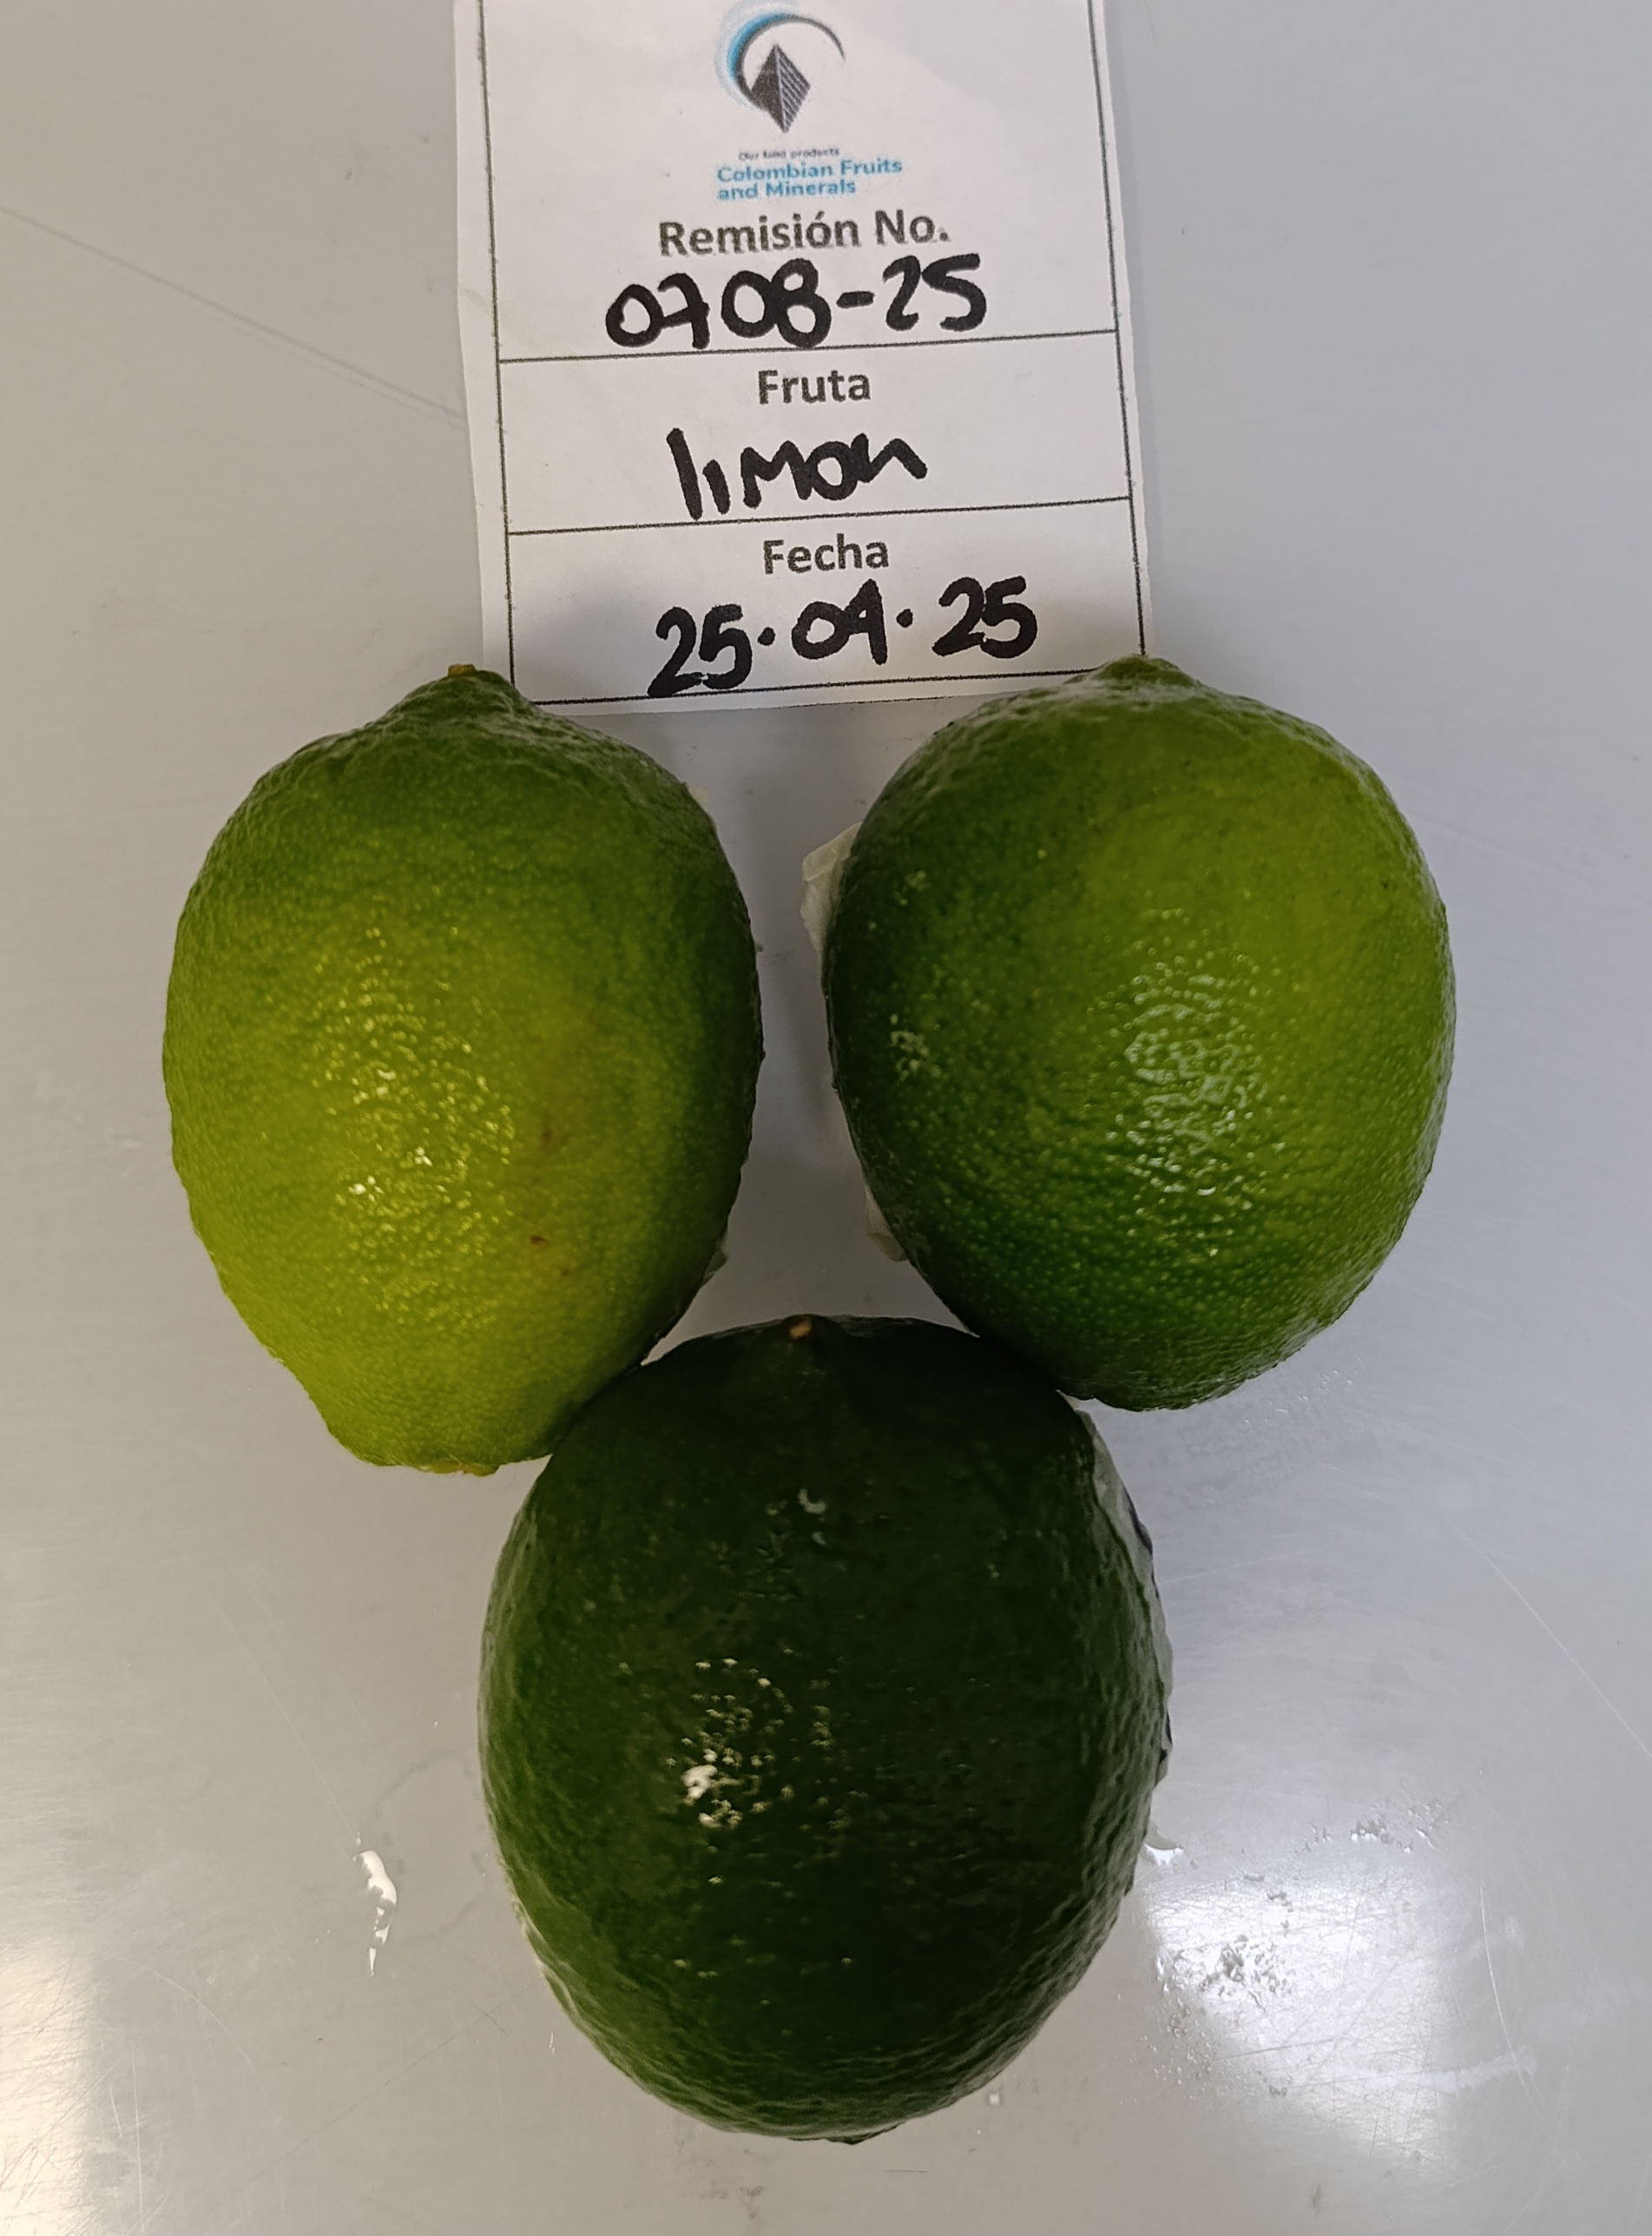 Our land products
Colombian Fruits
and Minerals
Remisión No.
0708-25
Fruta
limon
Fecha
25.04.25